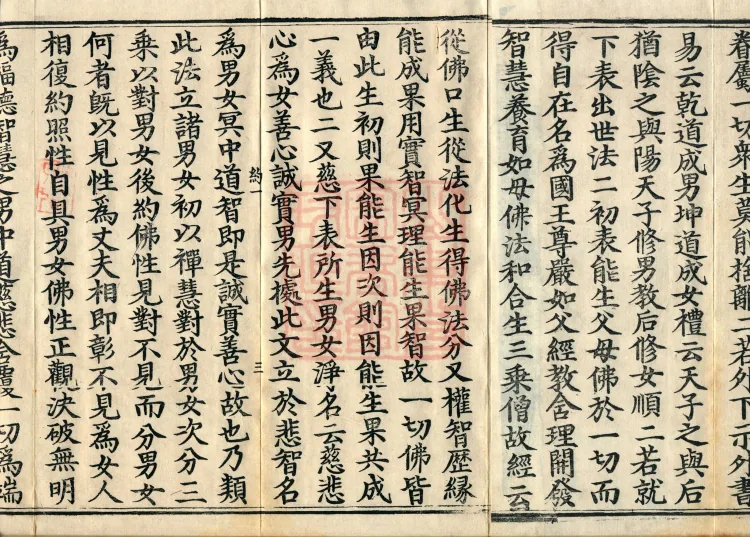 眷屬一切衆生莫能捨離二若外下示外書
易云乾道成男坤道成女禮云天子之與后
猶陰之與陽天子修男教后修女順二若就
下表出世法二初表能生父母佛於一切而
得自在名爲國王尊嚴如父經教舍理開發
智慧養育如母佛法和合生三乘僧故經云
從佛口生從法化生得佛法分又權智歷緣
能成果用實智冥理能生果智故一切佛皆
由此生初則果能生因次則因能生果共成
一義也二又慈下表所生男女淨名云慈悲
心爲女善心誠實男先處此文立於悲智名
爲男女冥中道智即是誠實善心故也乃類
約 三
此法立諸男女初以禪慧對於男女次分三
乘以對男女後約佛性見對不見而分男女
何者旣以見性爲丈夫相即彰不見爲女人
相復約照性自具男女佛性正觀決破無明
爲福德智慧之男中道慈悲含覆一切爲端